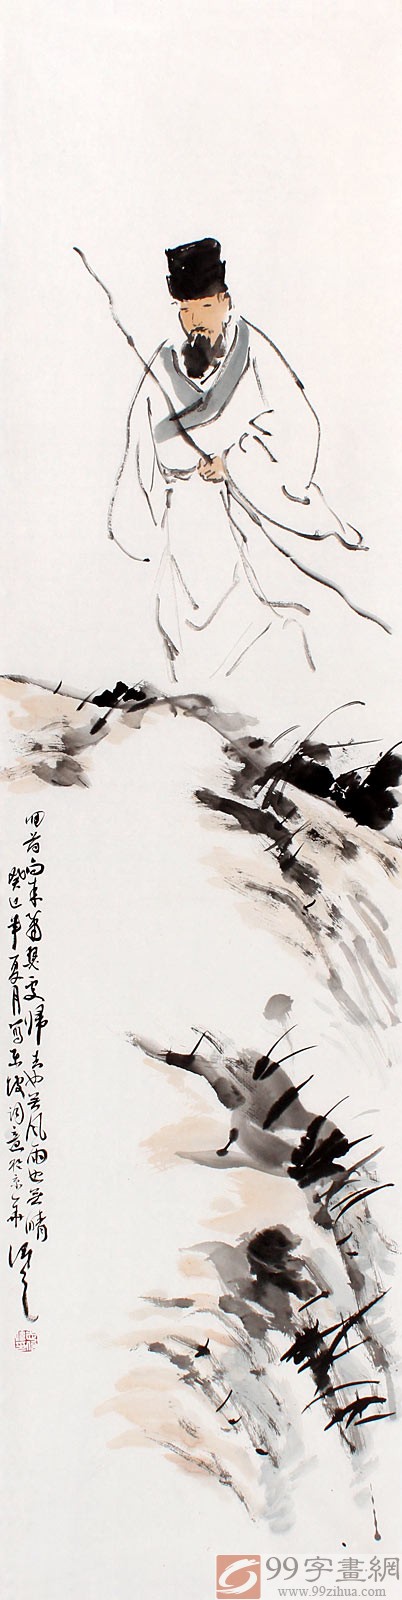 回首向来萧瑟处归去也无风雨也无晴
癸巳年夏月写东坡词意于京华
99字畫網
www.99zihua.com